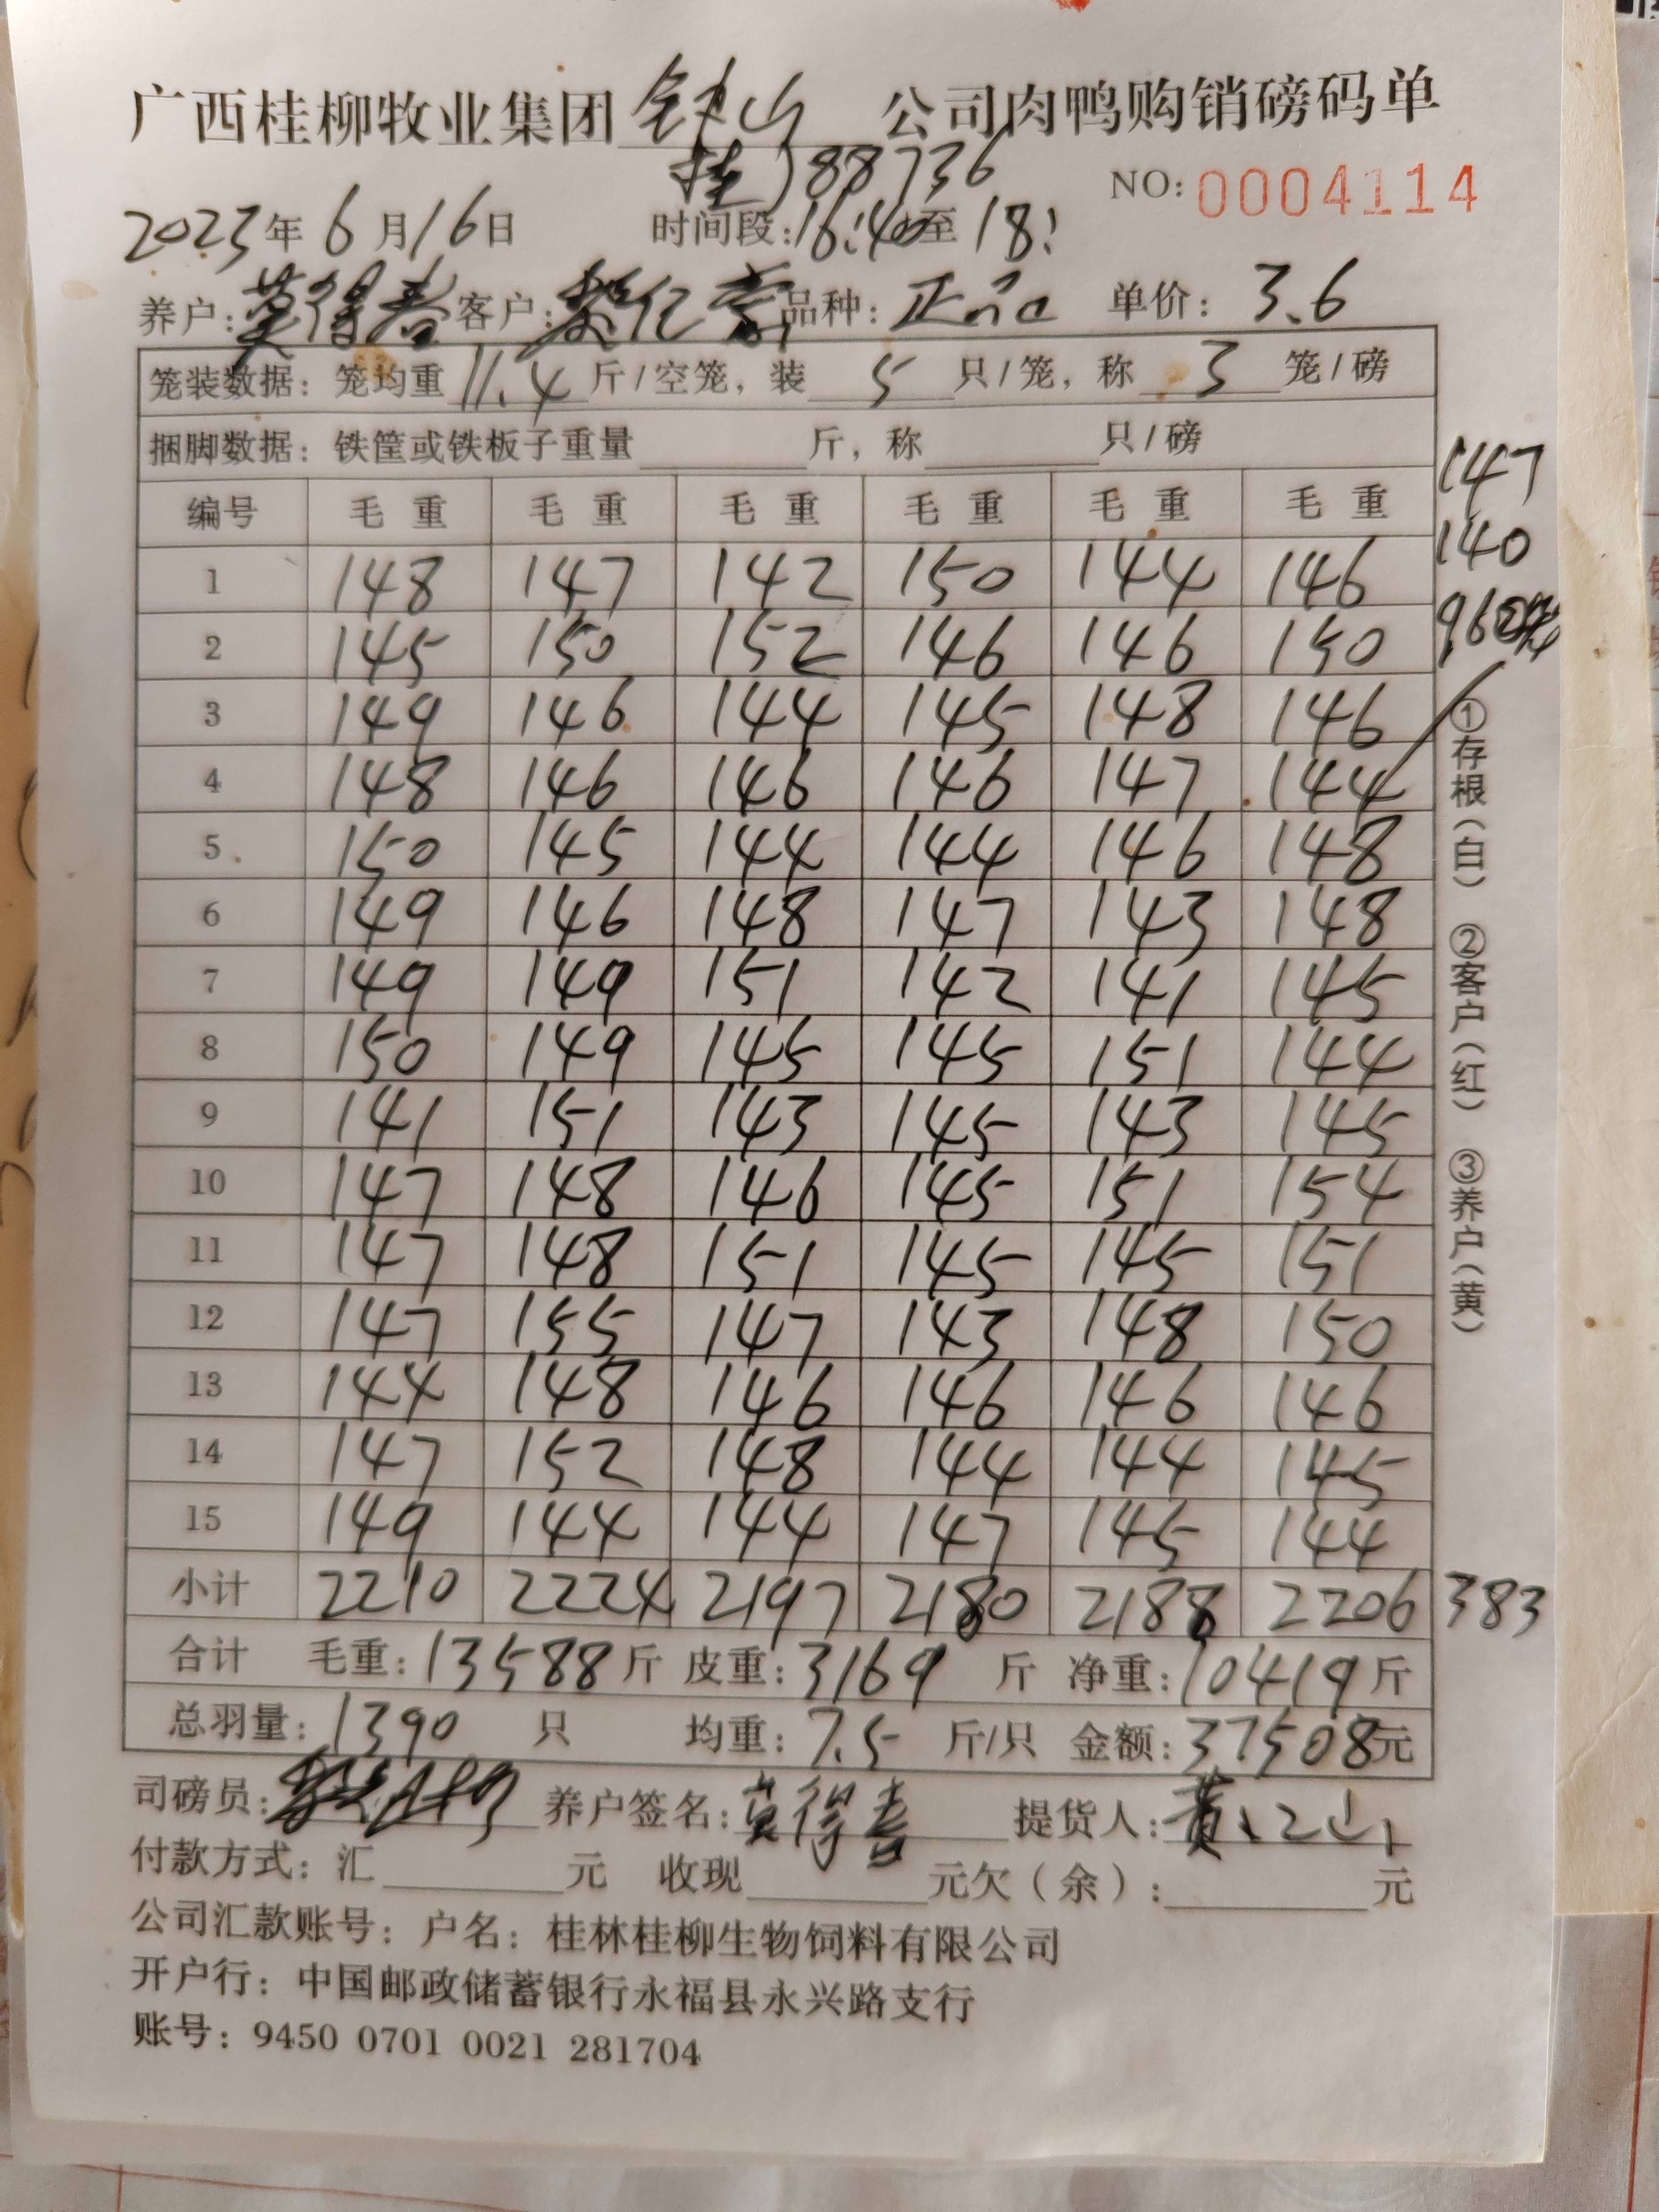 广西桂柳牧业集团钟山 公司肉鸭购销磅码单
桂J88736
NO: 0004114
2023年6月16日 时间段:16:40至18:
养户:莫得春 客户: 品种:正品 单价:3.6
笼装数据:笼均重11.4斤/空笼,装5只/笼,称3笼/磅
捆脚数据:铁筐或铁板子重量 斤,称 只/磅
147
140
96
编号 毛重 毛重 毛重 毛重 毛重 毛重
1 148 147 142 150 144 146
2 145 150 152 146 146 150
3 149 146 144 145 148 146
4 148 146 146 146 147 144
5 150 145 144 144 146 148
6 149 146 148 147 143 148
7 149 149 151 142 141 145
8 150 149 145 145 151 144
9 141 151 143 145 143 145
10 147 148 146 145 151 154
11 147 148 151 145 145 151
12 147 155 147 143 148 150
13 144 148 146 146 146 146
14 147 152 148 144 144 145
15 149 144 144 147 145 144
小计 2210 2224 2197 2180 2188 2206 383
合计 毛重:13588斤 皮重:3169斤 净重:10419斤
总羽量:1390只 均重:7.5斤/只 金额:37508元
司磅员: 养户签名:莫得春 提货人:黄
付款方式:汇 元 收现 元欠(余): 元
公司汇款账号:户名:桂林桂柳生物饲料有限公司
开户行:中国邮政储蓄银行永福县永兴路支行
账号:9450 0701 0021 281704
①存根(白) ②客户(红) ③养户(黄)